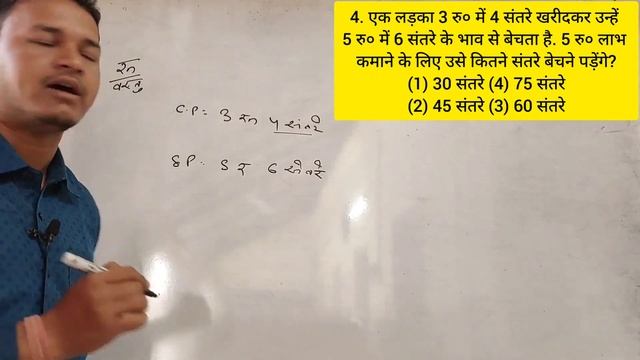 4. एक लड़का 3 रु० में 4 संतरे खरीदकर उन्हें
5 रु० में 6 संतरे के भाव से बेचता है. 5 रु० लाभ
कमाने के लिए उसे कितने संतरे बेचने पड़ेंगे?
(1) 30 संतरे (4) 75 संतरे
(2) 45 संतरे (3) 60 संतरे
वस्तु
C.P: 3 रु 4 संतरे
S P: 5 रु 6 संतरे